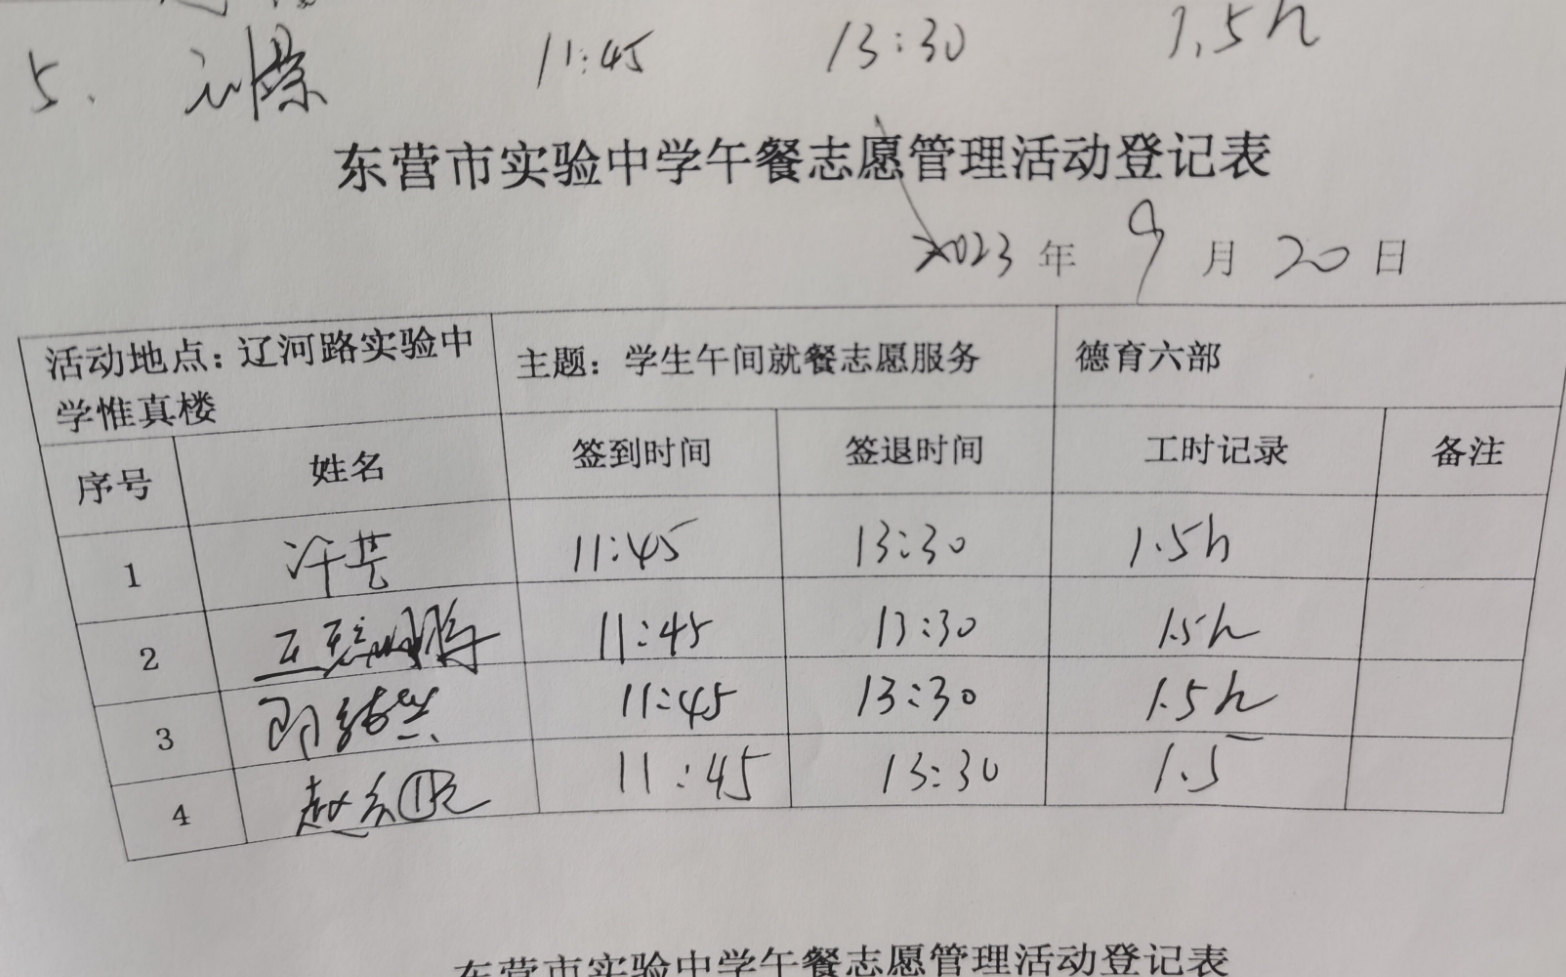 5. 11:45 13:30 1.5h
东营市实验中学午餐志愿管理活动登记表
2023 年 9 月 20 日
活动地点:辽河路实验中
学惟真楼
主题：学生午间就餐志愿服务
德育六部
序号 姓名 签到时间 签退时间 工时记录 备注
1 许芸 11:45 13:30 1.5h
2 11:45 13:30 1.5h
3 11:45 13:30 1.5h
4 11:45 13:30 1.5
东营市实验中学午餐志愿管理活动登记表